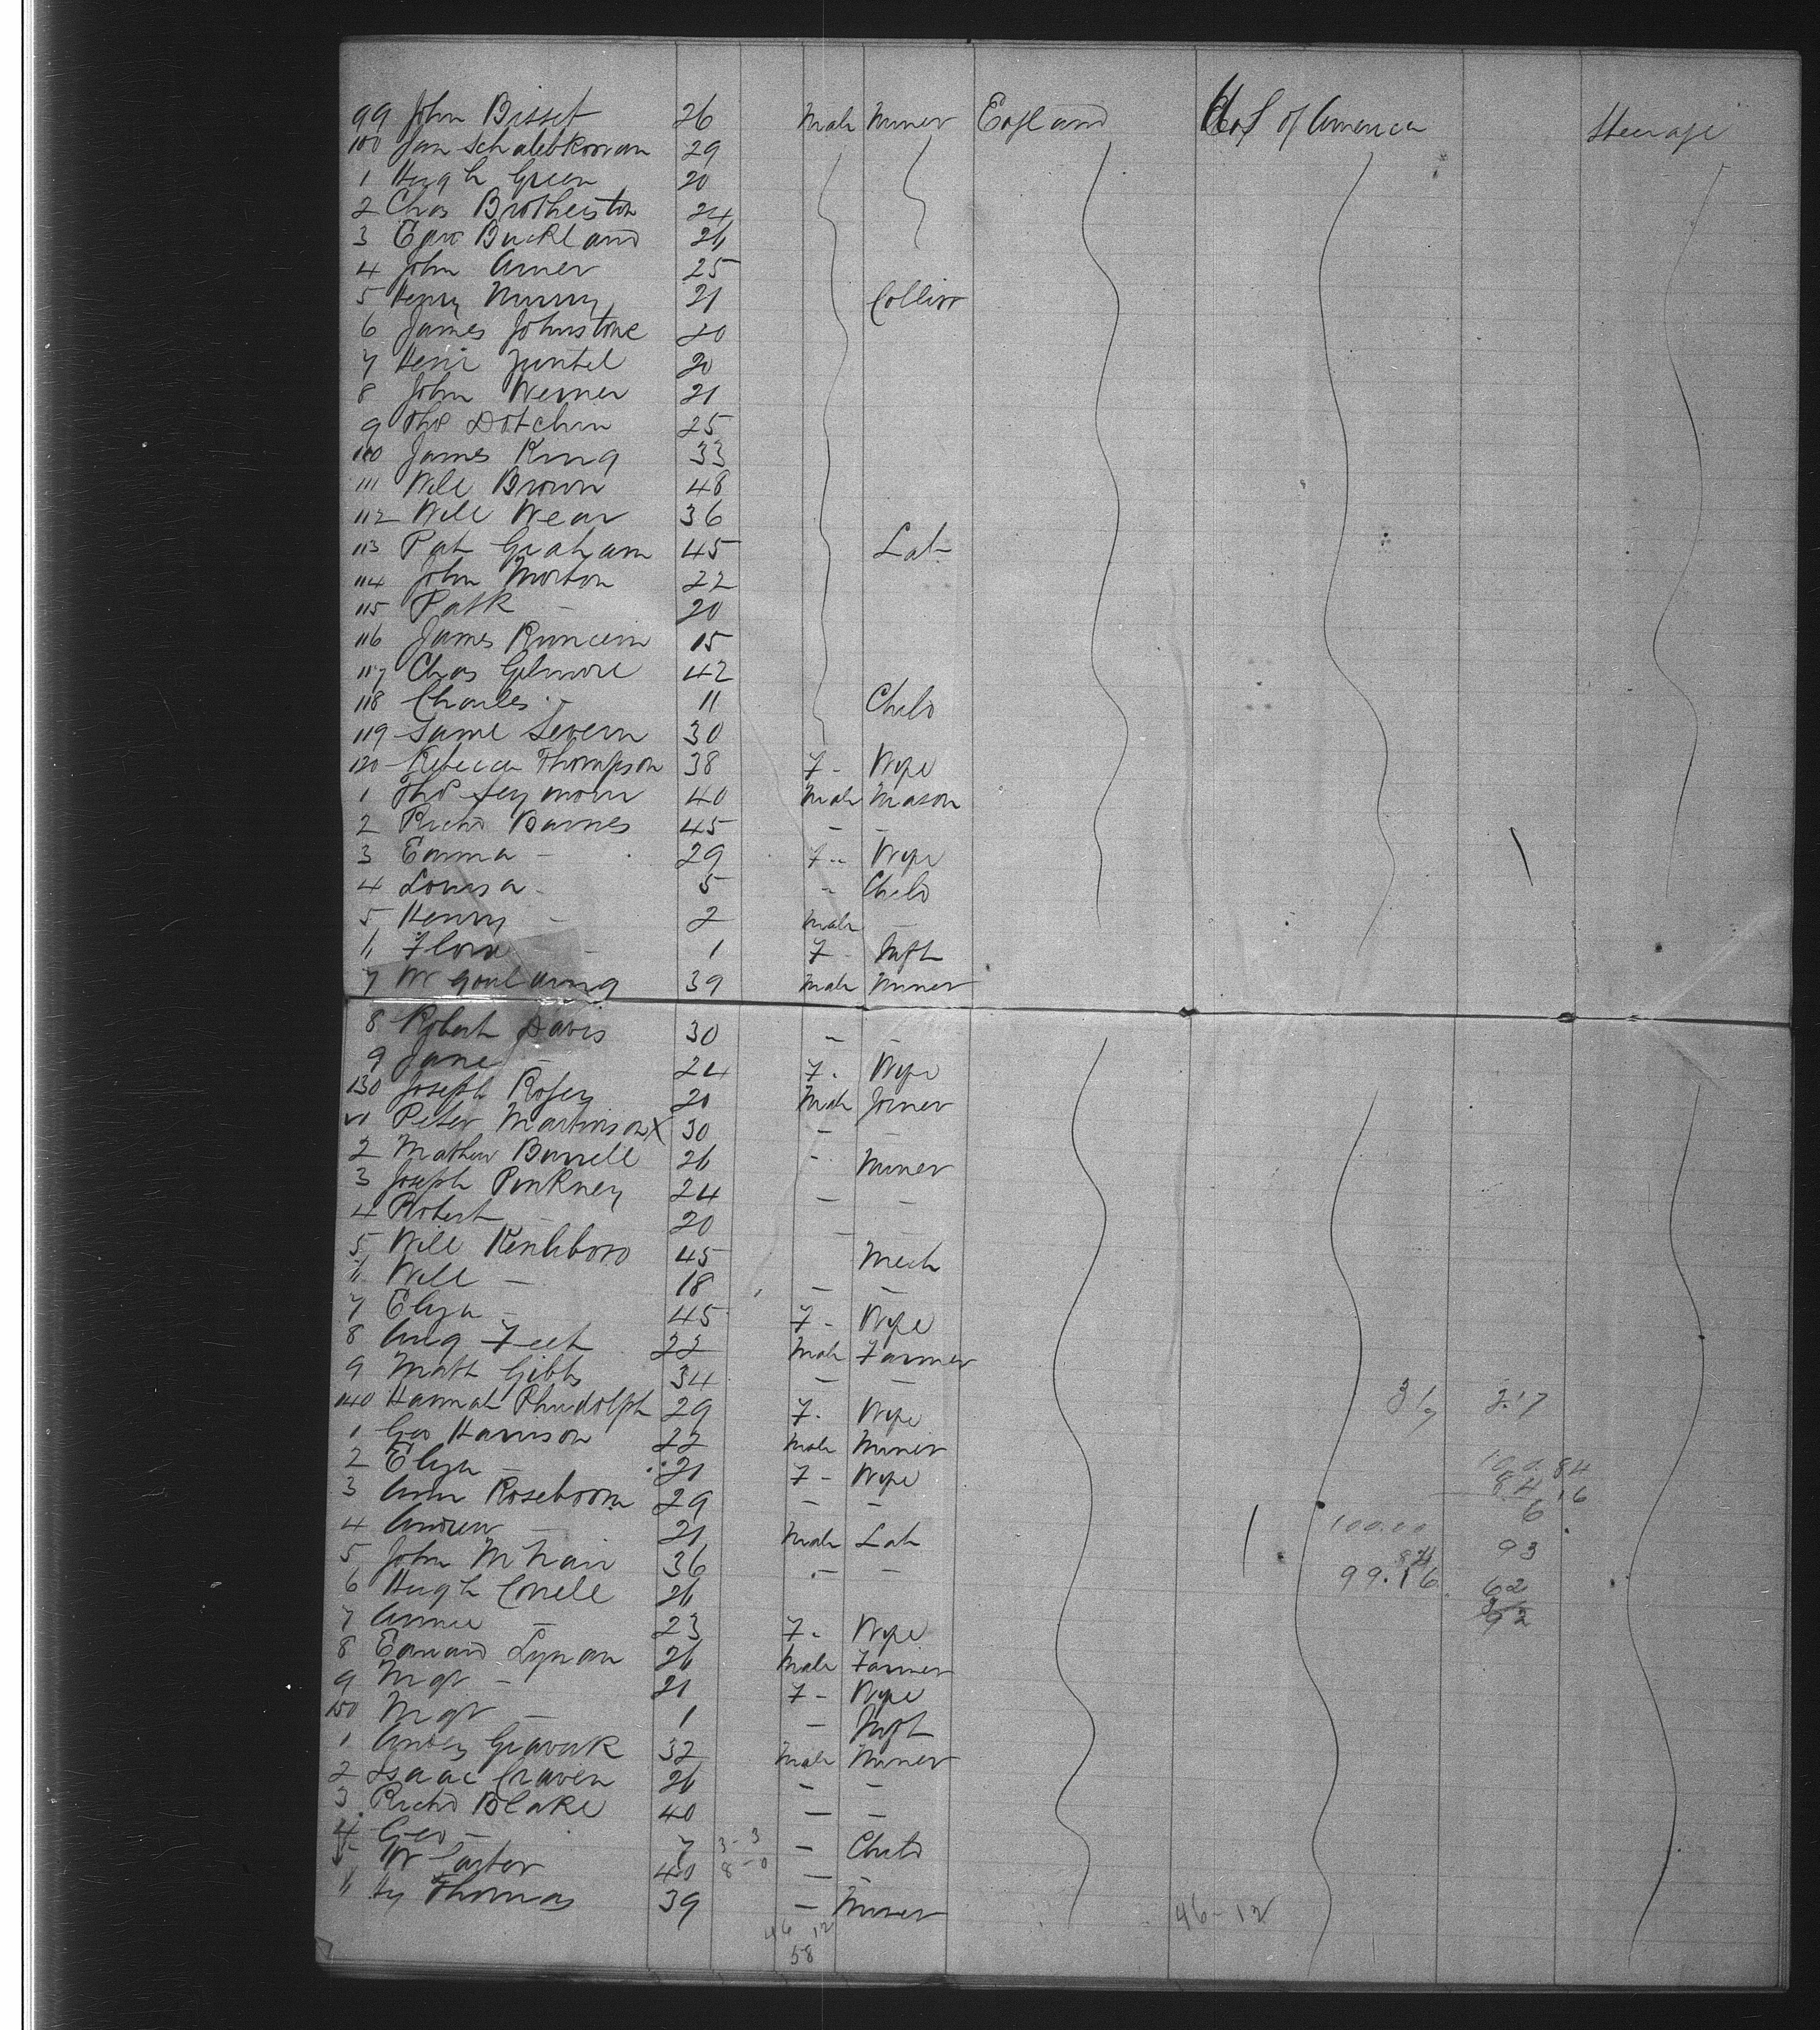 99 John Bisset 26 Male Miner England U S of America Steerage
100 Jan 29
1 Hugh Green 20
2 Chas Brotherston 24
3 Buckland 26
4 John 25
5 Henry Murray 21 Collier
6 James Johnstone 20
7 20
8 John Werner 21
9 Thos Dotchin 25
110 James King 33
111 Will Brown 48
112 Will Wear 36
113 Pat Graham 45 Lab
114 John Morton 22
115 Patk – 20
116 James 15
117 Chas Gilmore 42
118 Charles – 11 Child
119 Saml Severn 30
120 Rebecca Thompson 38 F – Wife
1 Thos Seymour 40 Male Mason
2 Richd Barnes 45 – –
3 Emma – 29 F – Wife
4 Louisa – 5 – Child
5 Henry – 2 Male –
6 Flora – 1 F – Inft
7 W Goulding 39 Male Miner
8 Robert Davis 30 – –
9 Jane – 24 F – Wife
130 Joseph 20 Male Joiner
Peter Martinson X 30 – –
2 Mathew Burrell 26 – Miner
3 Joseph Pinkney 24 – –
4 Robert – 20 – –
5 Will 45 Mech
6 Will – 18 – –
7 Eliza – 45 F – Wife
8 Aug Feet 22 Male Farmer
9 Matt Gibbs 34 – –
140 Hannah Rhudolph 29 F – Wife
1 Geo Harrison 22 Male Miner
2 Eliza – 21 F – Wife
3 Ann Roseboom 29 – –
4 Andrew – 21 Male Lab
5 John McNair 36 – –
6 Hugh 26
7 Annie – 23 F – Wife
8 Edward Lynam 26 Male Farmer
9 Mgt – 21 F – Wife
150 Mgt – 1 – Inft
1 32 Male Miner
2 Isaac Craven 26 – –
3 Richd Blake 40 – –
4 Geo – 7 3-3 – Child
5 W Carter 40 8-0 – –
6 Hy Thomas 39 – Miner
46 12 46-12
58
100.00
84
99.16
93
62